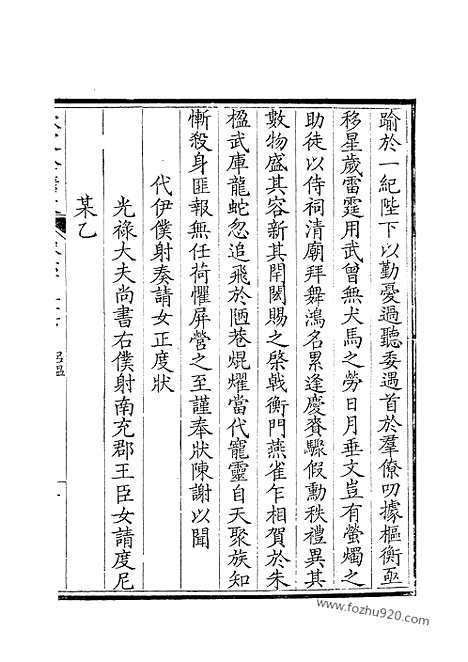 踰於一紀陛下以勤憂過聽委遇首於羣僚叨據樞衡亟
移星歲雷霆用武曾無犬馬之勞日月垂文豈有螢燭之
助徒以侍祠清廟拜舞鴻名累逢慶賚驟假勳秩禮異其
數物盛其容新其閈閎賜之棨戟衡門燕雀乍相賀於朱
楹武庫龍蛇忽追飛於陋巷焜燿當代寵靈自天聚族知
慚殺身匪報無任荷懼屏營之至謹奉狀陳謝以聞
代伊僕射奏請女正度狀
光祿大夫尚書右僕射南充郡王臣女請度尼
某乙
www.fozhu920.com